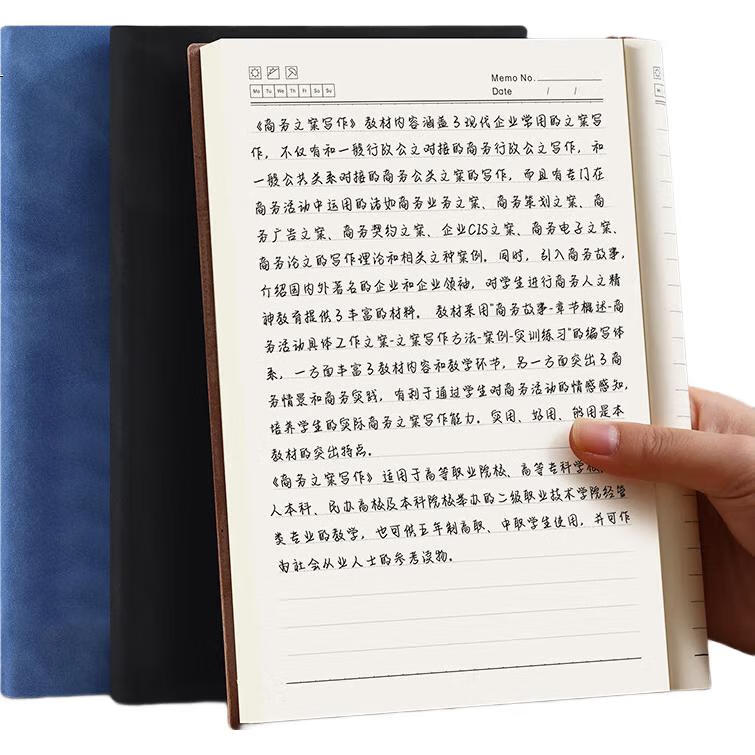 Memo No.
Mo Tu We Th Fr Sa Su
Date / /
《商务文案写作》教材内容涵盖了现代企业常用的文案写
作，不仅有和一般行政公文对接的商务行政公文写作，和
一般公共关系对接的商务公关文案的写作，而且有专门在
商务活动中运用的诸如商务业务文案、商务策划文案、商
务广告文案、商务契约文案、企业CIS文案、商务电子文案、
商务论文的写作理论和相关文种案例。同时，引入商务故事，
介绍国内外著名的企业和企业领袖，对学生进行商务人文精
神教育提供了丰富的材料。教材采用"商务故事-章节概述-商
务活动具体工作文案-文案写作方法-案例-实训练习"的编写体
系，一方面丰富了教材内容和教学环节，另一方面突出了商
务情景和商务实践，有利于通过学生对商务活动的情感感知，
培养学生的实际商务文案写作能力。实用、好用、够用是本
教材的突出特点。
《商务文案写作》适用于高等职业院校、高等专科学校、
人本科、民办高校及本科院校举办的二级职业技术学院经管
类专业的教学，也可供五年制高职、中职学生使用，并可作
为社会从业人士的参考读物。